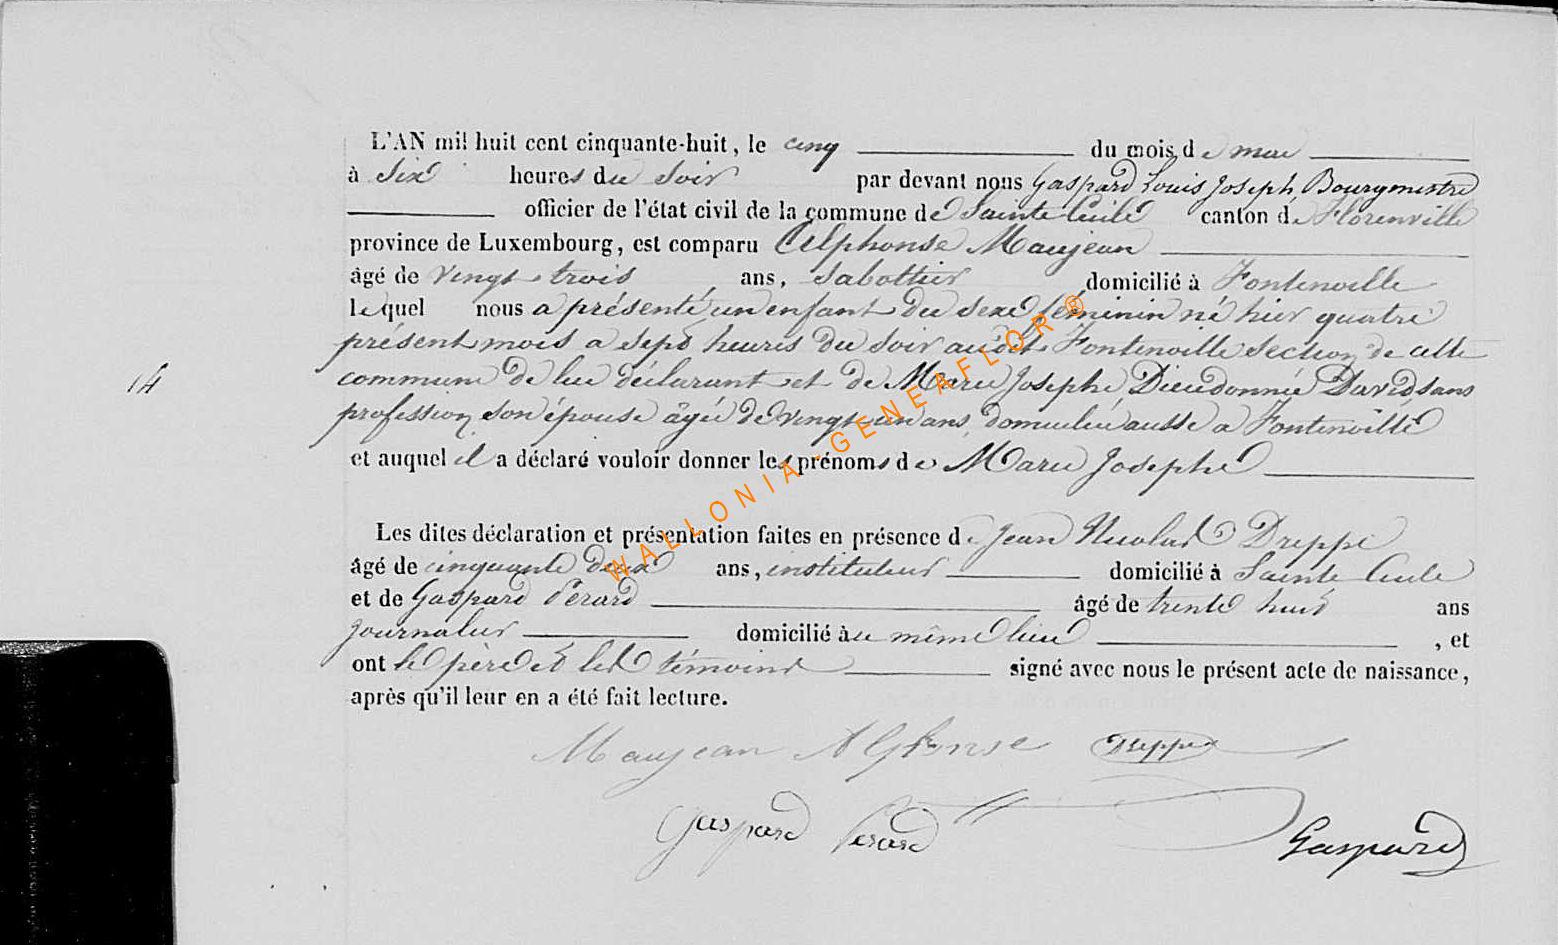 L'AN mil huit cent cinquante-huit, le cinq du mois de mai
à six heures du soir par devant nous Gaspard Louis Joseph, Bourgmestre
officier de l'état civil de la commune de Sainte Cécile canton de Florenville
province de Luxembourg, est comparu Alphonse Maujean
âgé de vingt trois ans, sabottier domicilié à Fontenoille
lequel nous a présenté un enfant du sexe féminin né hier quatre
présent mois a sept heures du soir audit Fontenoille section de cette
commune de lui déclarant et de Marie Josephe Dieudonnée David sans
profession son épouse âgée de vingt un ans, domiciliée aussi a Fontenoille
14
et auquel il a déclaré vouloir donner les prénoms de Marie Josephe
Les dites déclaration et présentation faites en présence de Jean Nicolas Dreppe
âgé de cinquante deux ans, instituteur domicilié à Sainte Cecile
et de Gaspard Pérard âgé de trente huit ans
journalier domicilié au même lieu , et
ont le père et les témoins signé avec nous le présent acte de naissance,
après qu'il leur en a été fait lecture.
Maujean Alfonse Dreppe
Gaspard Perard
Gaspard
WALLONIA-GENEAFLOR®